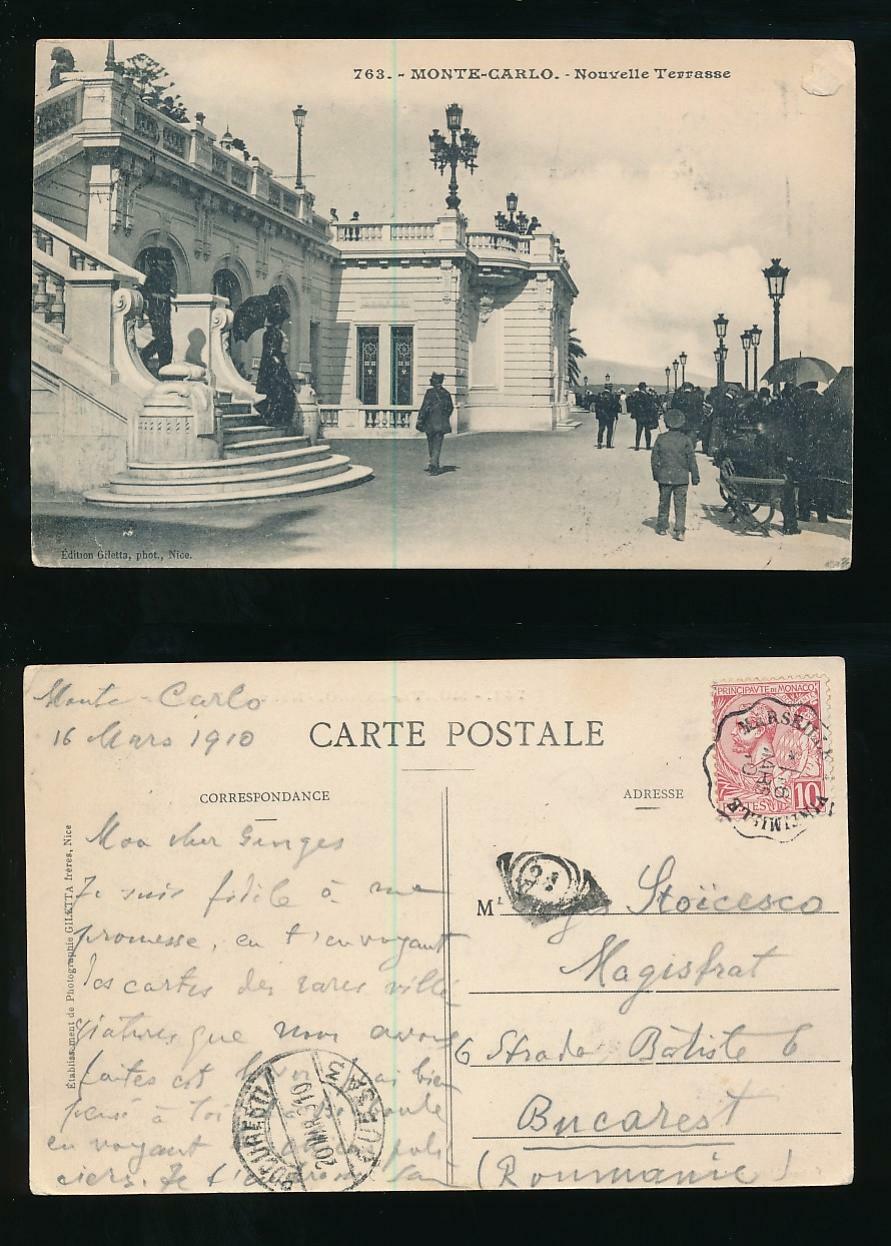 763. - MONTE-CARLO. - Nouvelle Terrasse
Édition Giletta, phot., Nice.
Monte-Carlo
16 Mars 1910
CARTE POSTALE
CORRESPONDANCE
ADRESSE
PRINCIPAUTÉ DE MONACO
10
MARSEILLE
Établissement de Photographie GILETTA frères, Nice
Mon cher Georges
Je suis fidèle à ma
promesse, en t'envoyant
les cartes des rares villé
giatures que nous avons
faites
bien
pensé à toi
en voyant
poli
ciers. Je
BUCURESTI
20 MAR 910
BURSA
M
Stoïcesco
Magistrat
6 Strada Batiste 6
Bucarest
(Roumanie)